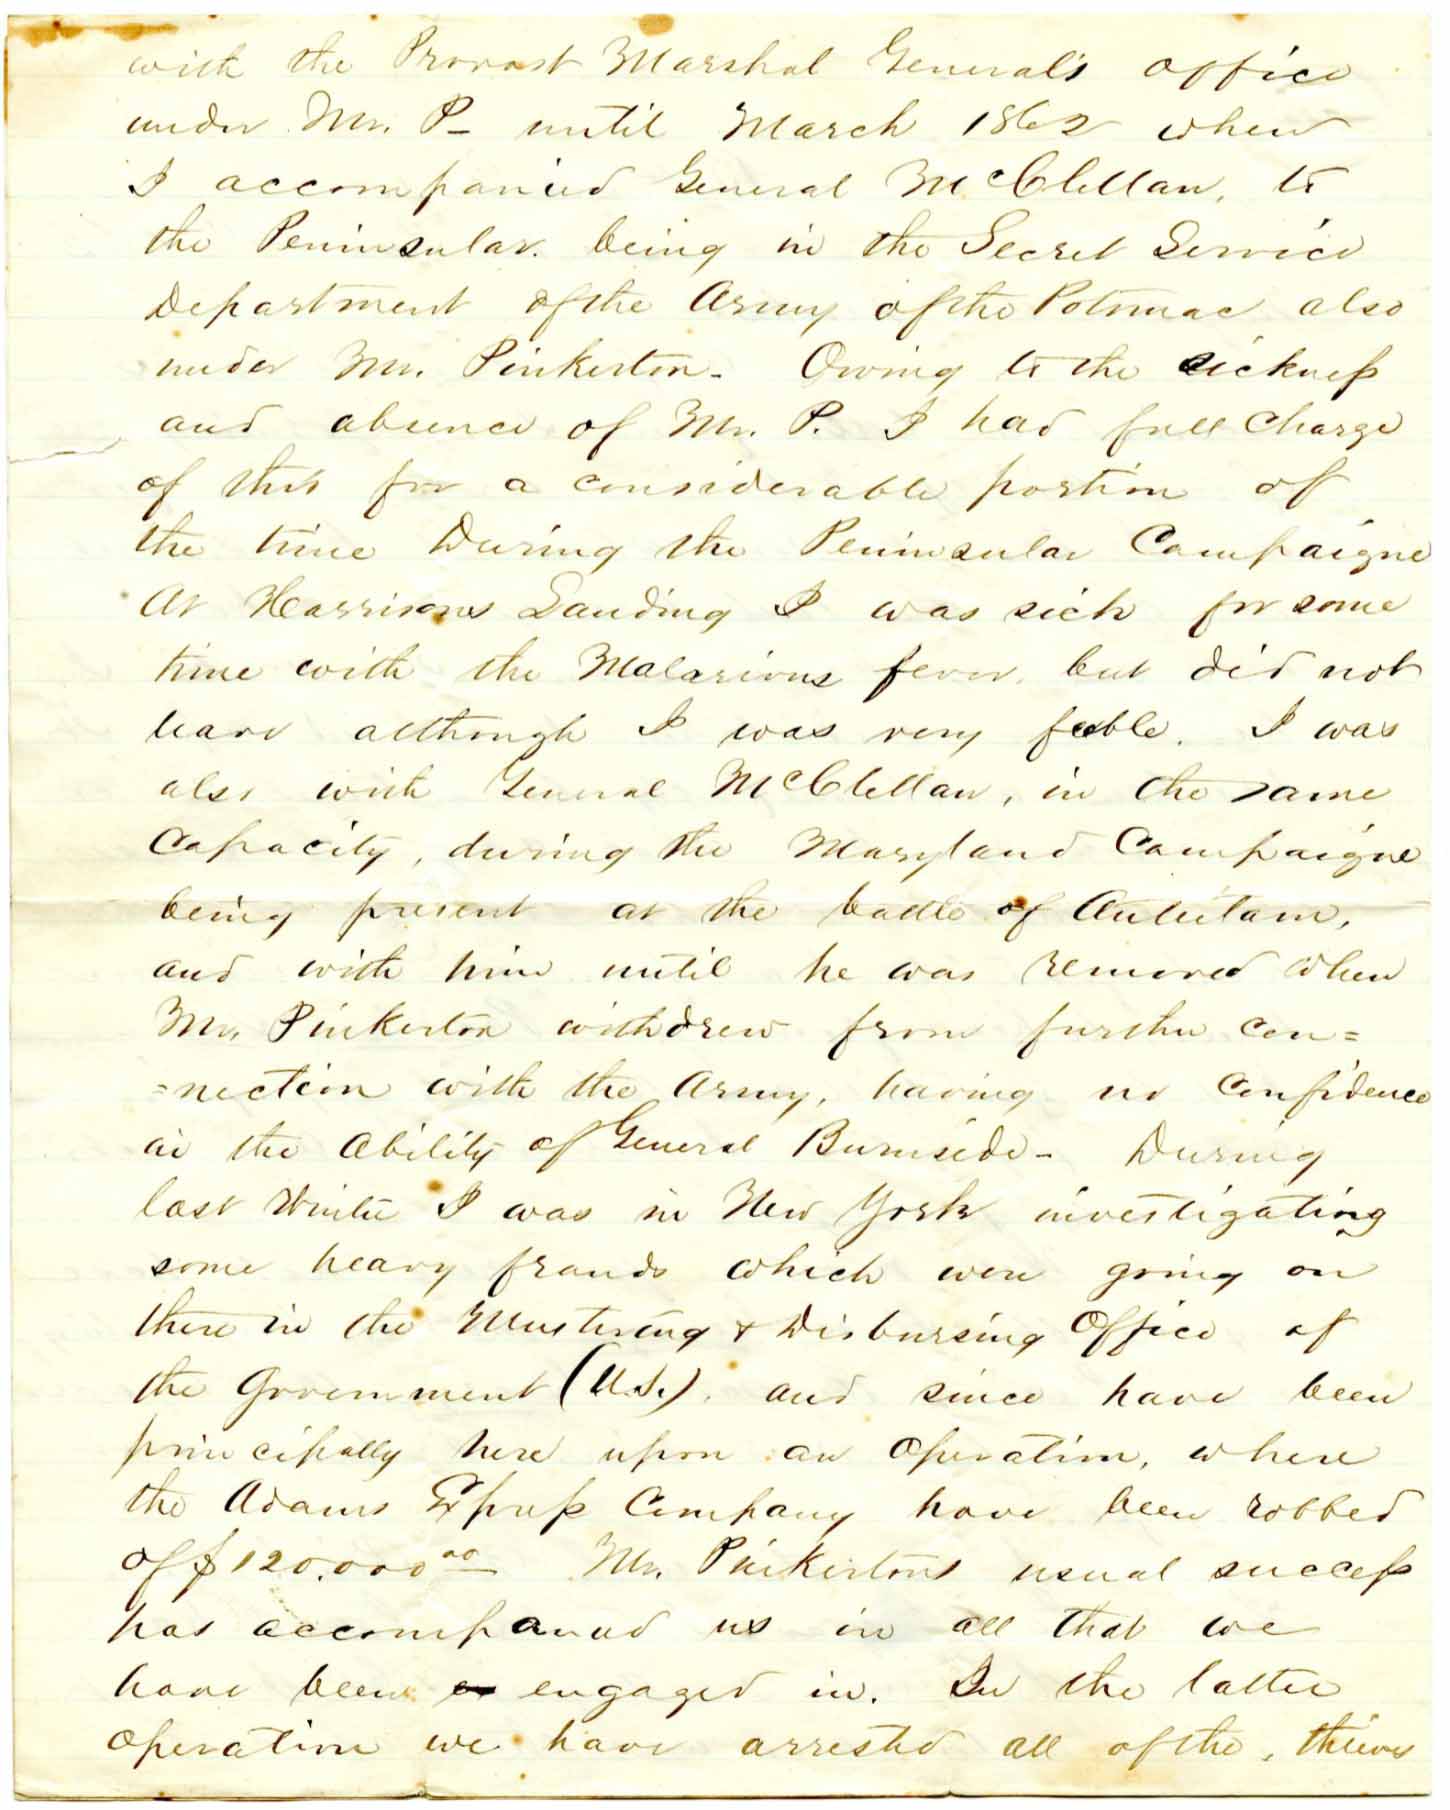 with the Provost Marshal General's office
under Mr. P– until March 1862 when
I accompanied General McClellan, to
the Peninsular. being in the Secret Service
Department of the Army of the Potomac also
under Mr. Pinkerton– Owing to the sickness
and absence of Mr. P. I had full charge
of this for a considerable portion of
the time During the Peninsular Campaigne
At Harrisons Landing I was sick for some
time with the Malarious fever, but did not
leave although I was very feeble. I was
also with General McClellan, in the same
Capacity, during the Maryland Campaigne
being present at the battle of Antietam,
and with him until he was removed when
Mr. Pinkerton withdrew from further con=
=nection with the Army, having no Confidence
in the Ability of General Burnside– During
last Winter I was in New York investigating
some heavy frauds which were going on
there in the Mustering & Disbursing Office of
the Government (U.S.). and since have been
principally here upon an Operation, where
the Adams Express Company have been robbed
of $120.000 00 Mr. Pinkertons usual success
has accompanied us in all that we
have been engaged in. In the latter
Operation we have arrested all of the, thieves